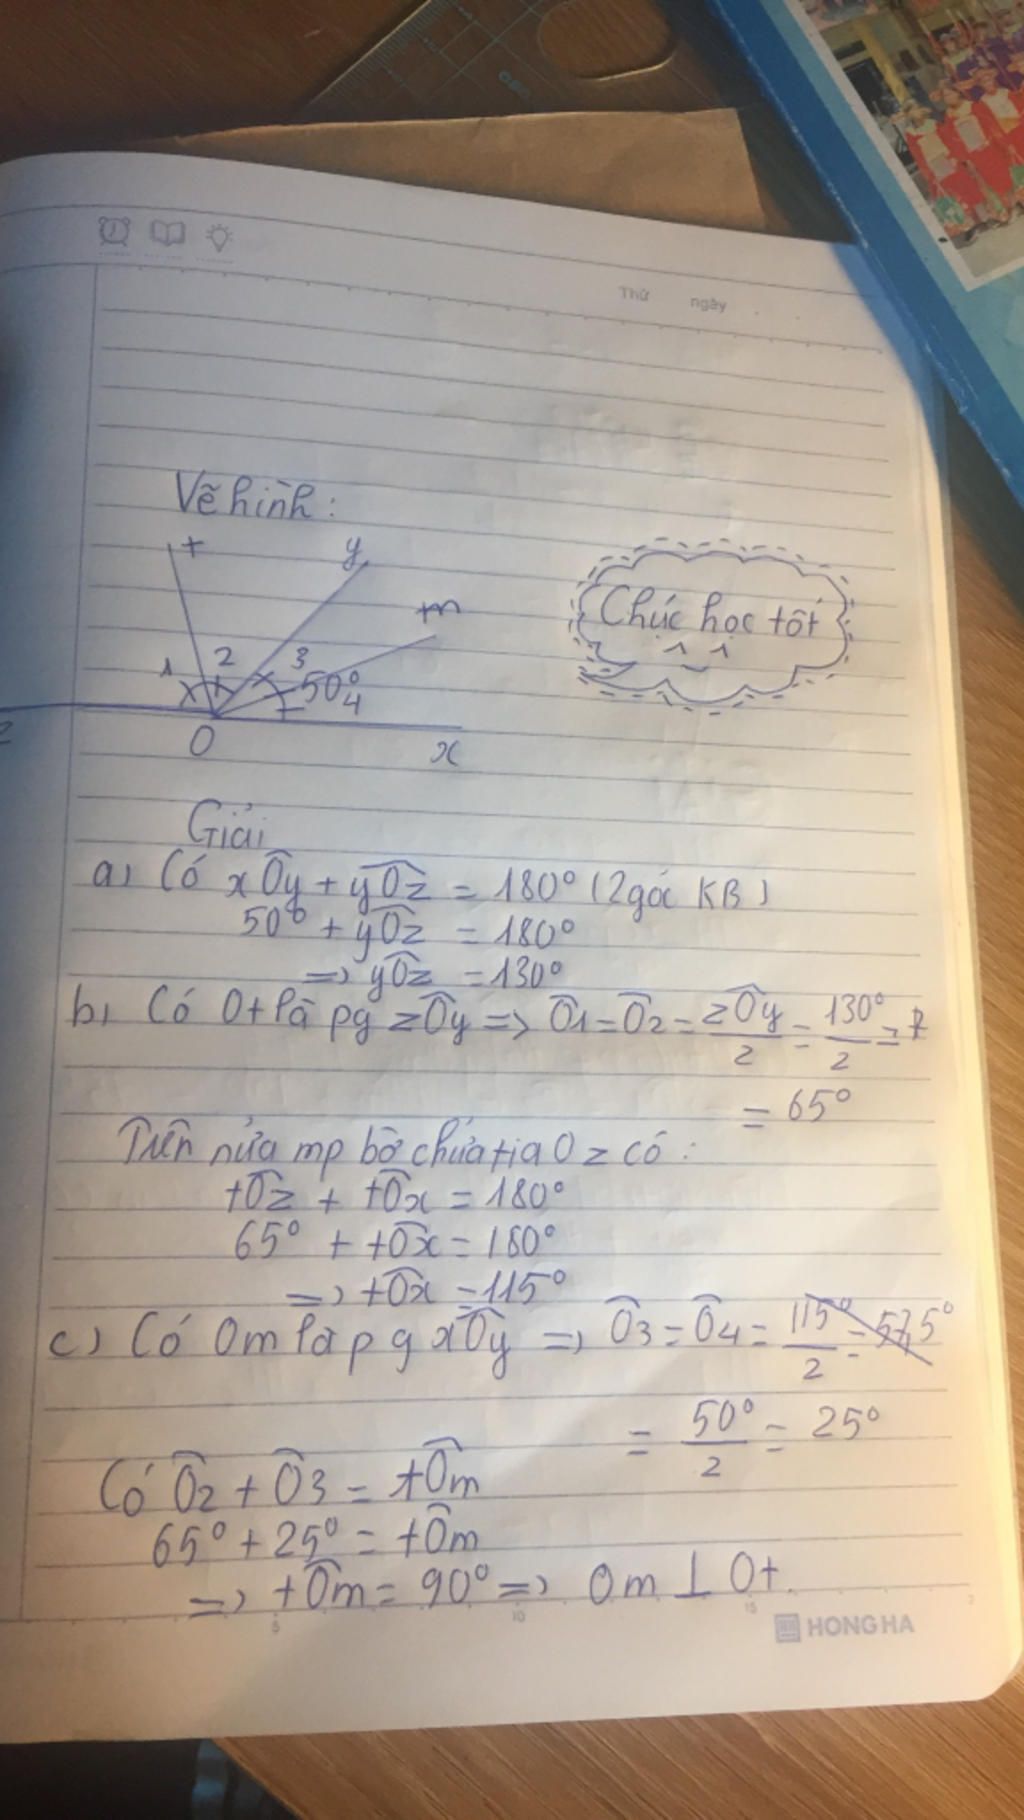 Thứ ngày
Vẽ hình:
t
y
m
1
2
3
50°
4
z
O
x
Chúc học tốt
Giải
a) Có xOy + yOz = 180° (2 góc KB)
50° + yOz = 180°
=> yOz = 130°
b, Có Ot là pg zOy => O1 = O2 = zOy/2 = 130°/2 =
= 65°
Trên nửa mp bờ chứa tia Oz có:
tOz + tOx = 180°
65° + tOx = 180°
=> tOx = 115°
c) Có Om là pg xOy => O3 = O4 = 115°/2 = 57,5°
= 50°/2 = 25°
Có O2 + O3 = tOm
65° + 25° = tOm
=> tOm = 90° => Om ⊥ Ot.
5 10 15
HONG HA